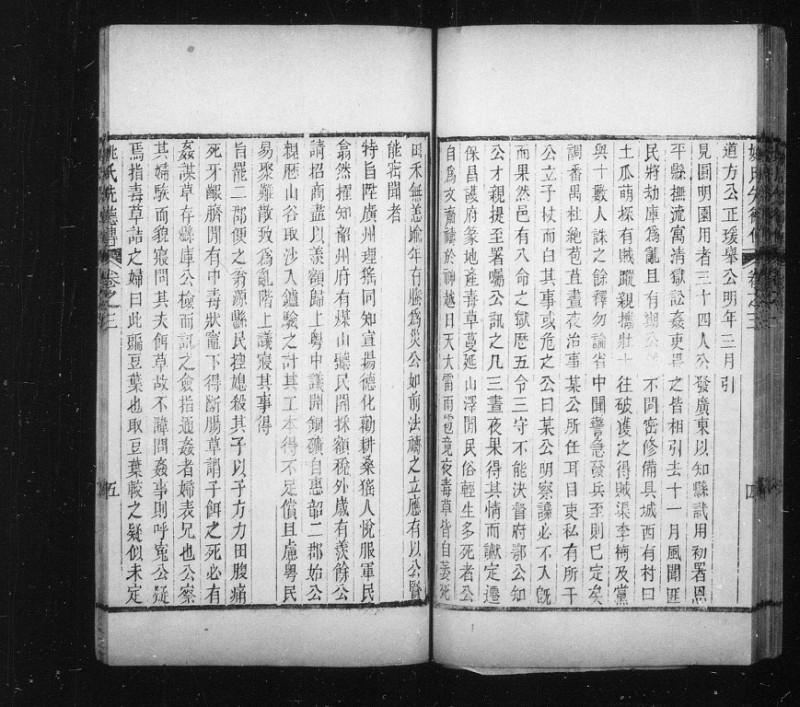 道方公正瑗舉公明年三月引
見圓明園用者三十四人公發廣東以知縣試用初署恩
平縣撫流寓清獄訟姦吏畏之皆相引去十一月風聞匪
民將劫庫為亂且有期公 不問密修備具城西有村曰
土瓜萌村有賊蹤親擕壯士往破獲之得賊渠李 及黨
與十數人誅之餘釋勿論省中聞警急發兵至則已定矣
調番禺杜絶苞苴晝夜治事某公所任耳目吏私有所干
公立予杖而白其事或危之公曰某公明察讒必不入旣
而果然邑有八命之獄歴五令三守不能決督府鄂公知
公才親提至署囑公訊之凡三晝夜果得其情而讞定遷
保昌護府篆地產毒草蔓延山澤閒民俗輕生多死者公
自為文齋禱於神越日天大雷雨雹竟夜毒草皆自萎死
田禾無恙踰年有螣為災公如前法禱之立應有以公賢
能密聞者
特旨陞廣州理猺同知宣揚德化勸耕桑猺人悅服軍民
翕然擢知韶州府有煤山聽民開採額稅外歲有羨餘公
請招商盡以羨額歸上粵中議開銅礦自惠韶二郡始公
親歴山谷取沙入鑪驗之計其工本得不足償且慮粵民
易聚難散致為亂階上議寢其事得
旨罷二郡便之翁源縣民控媳殺其子以子方力田腹痛
死牙齦臍閒有中毒狀竈下得斷腸草謂子餌之死必有
姦謀草存縣庫公檢而訊之僉指通姦者婦表兄也公察
其婦騃而貌寢問其夫餌草故不諱問姦事則呼寃公疑
焉指毒草詰之婦曰此豌豆葉也取豆葉較之疑似未定
姚氏先德傳 卷之三 五